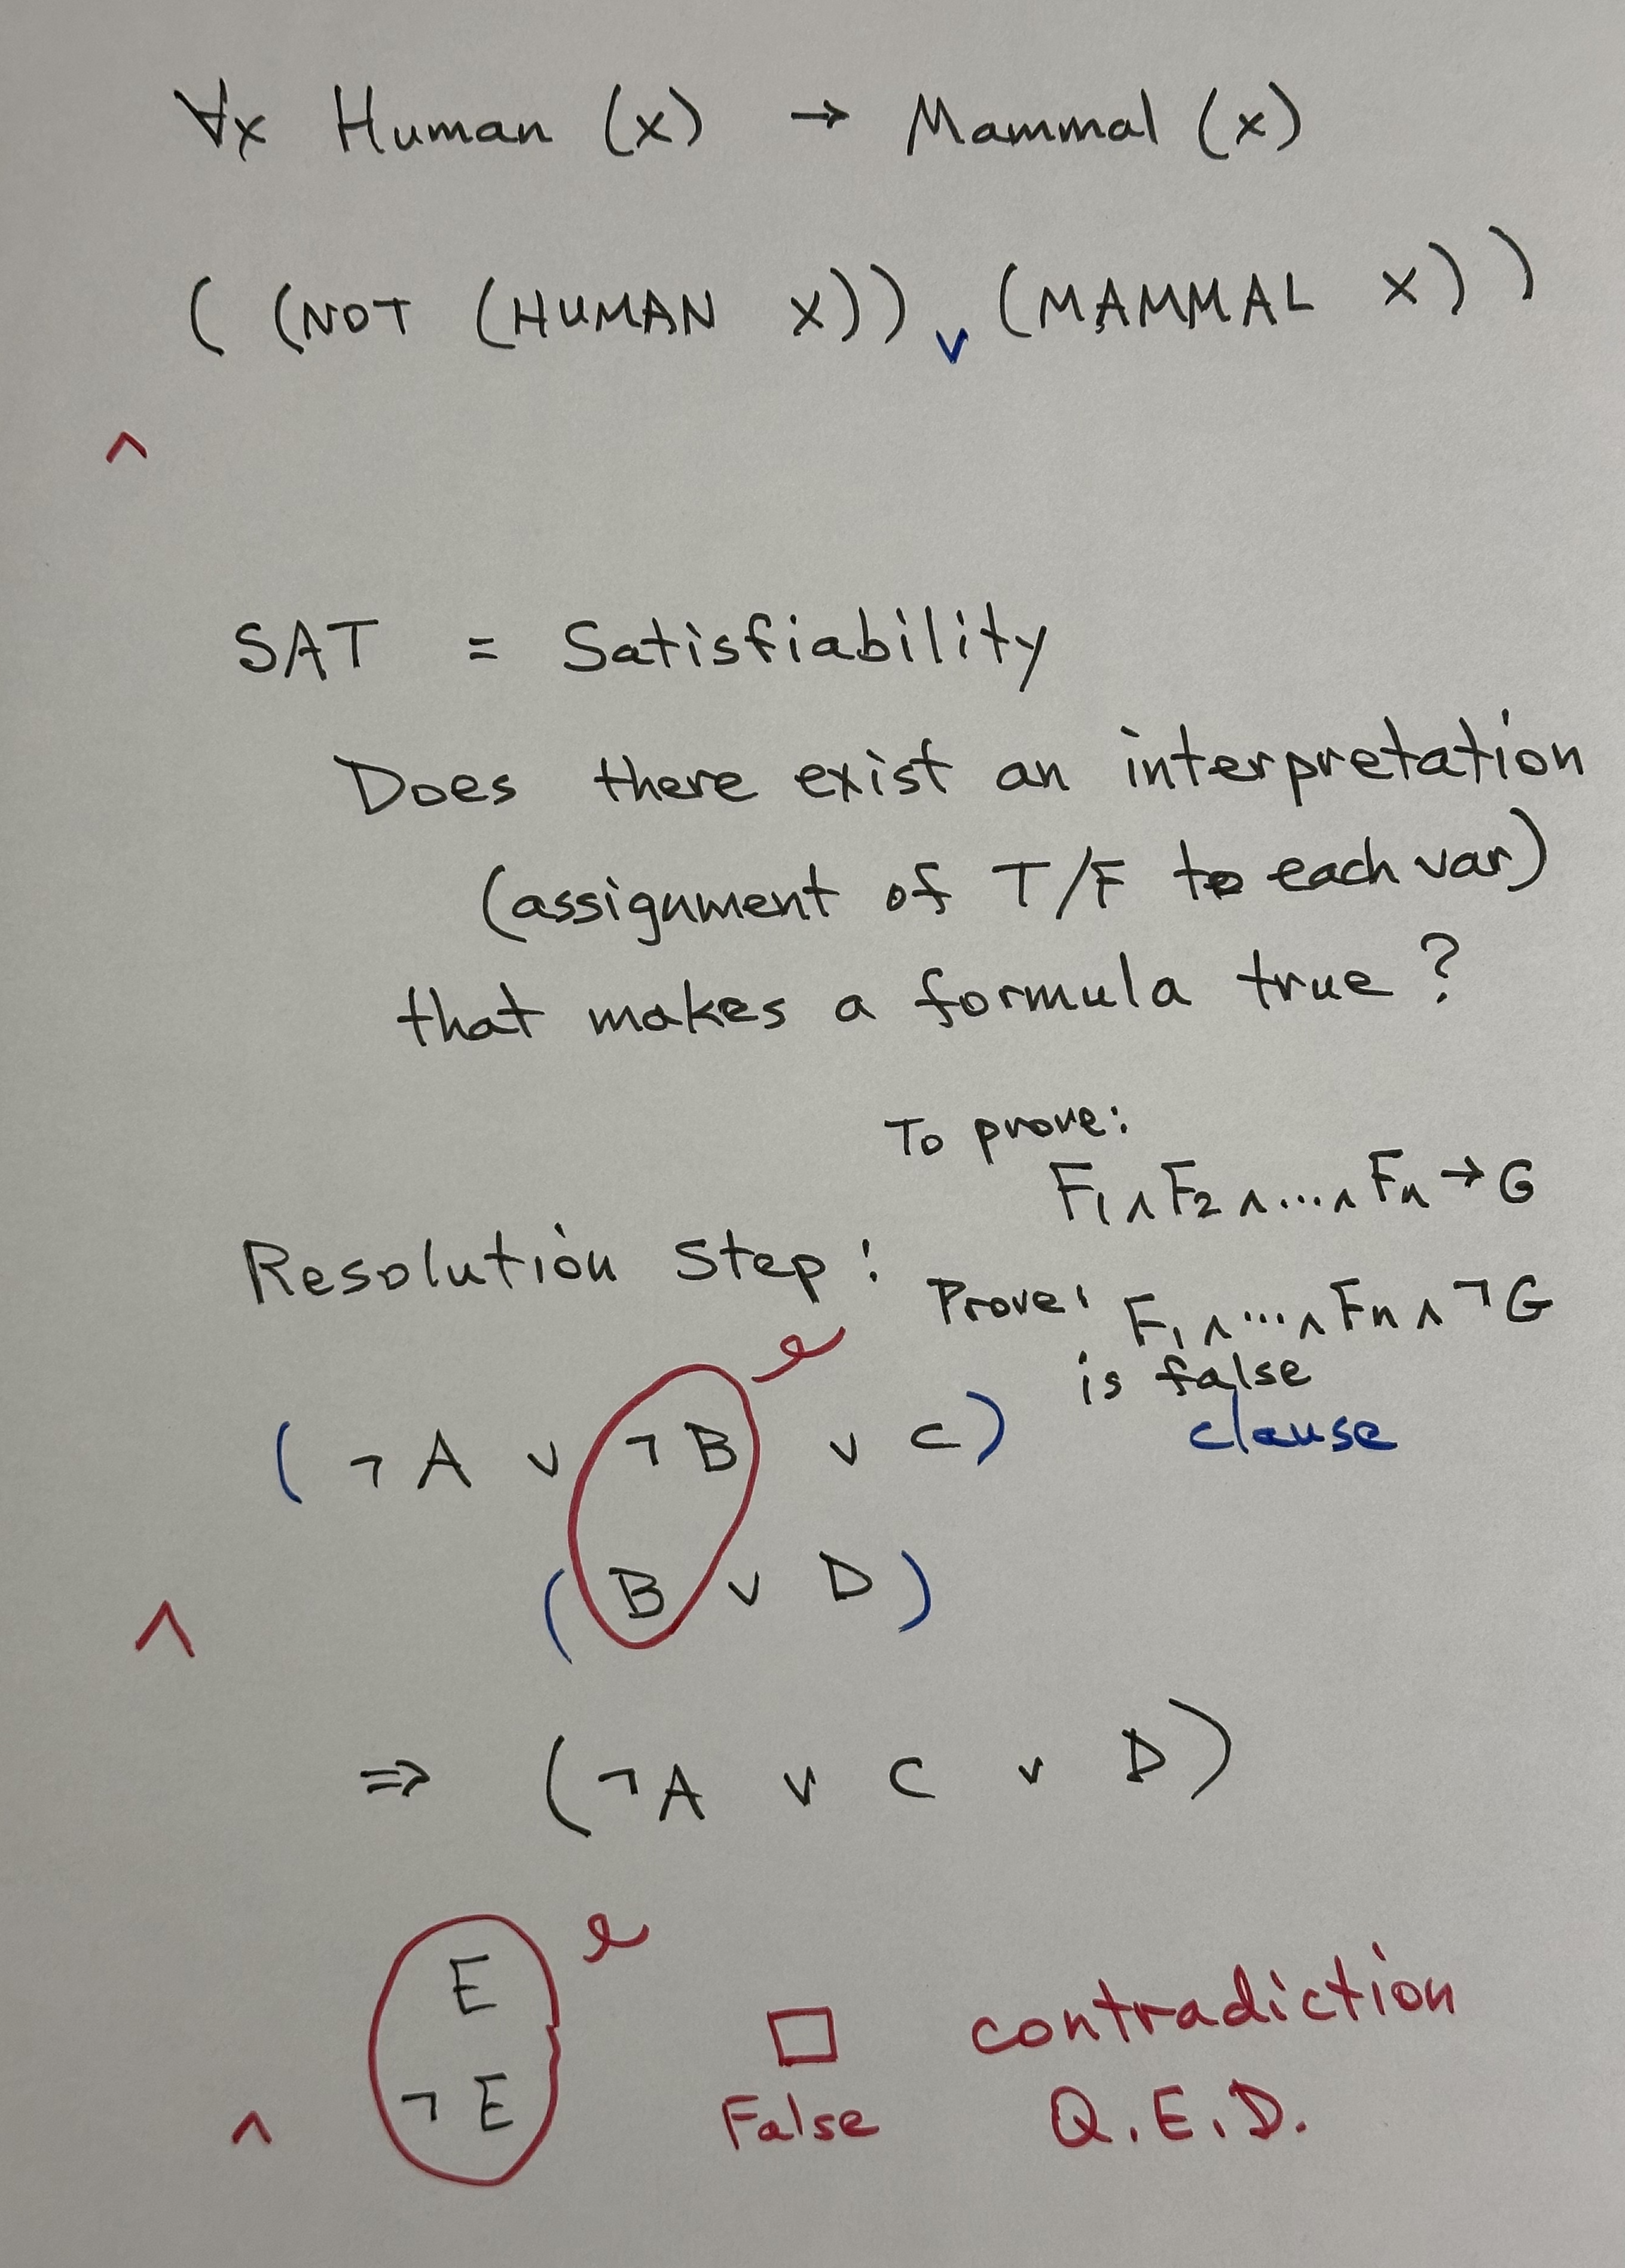 ∀x Human (x) → Mammal (x)
( (NOT (HUMAN X)) ∨ (MAMMAL X) )
∧
SAT = Satisfiability
Does there exist an interpretation
(assignment of T/F to each var)
that makes a formula true?
To prove:
F₁ ∧ F₂ ∧ .... ∧ Fₙ → G
Resolution Step:
Prove: F₁ ∧ ... ∧ Fₙ ∧ ¬G
is false
( ¬A ∨ ¬B ∨ C) clause
∧ ( B ∨ D )
⇒ (¬A ∨ C ∨ D)
E
∧ ¬E
□ contradiction
False Q.E.D.